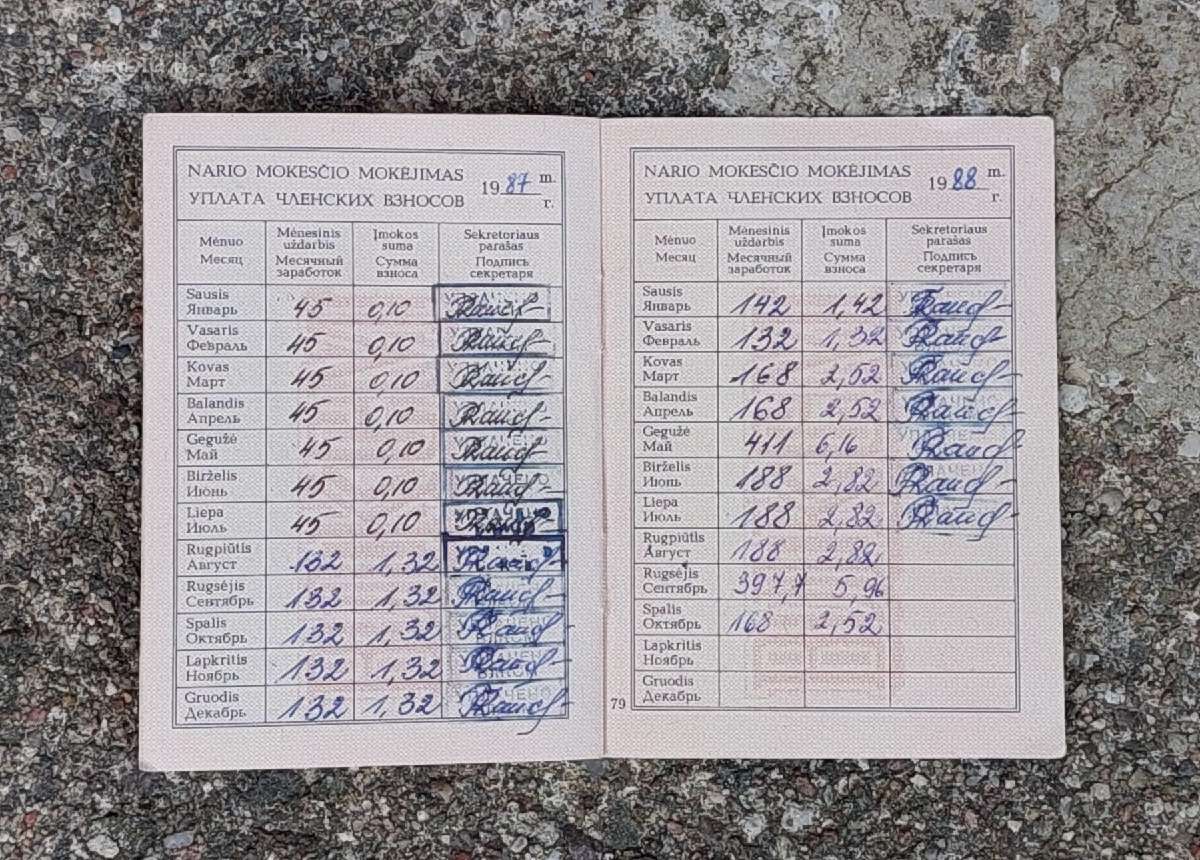 NARIO MOKESČIO MOKĖJIMAS
УПЛАТА ЧЛЕНСКИХ ВЗНОСОВ
1987 m.
г.
Mėnuo
Месяц
Mėnesinis
uždarbis
Месячный
заработок
Įmokos
suma
Сумма
взноса
Sekretoriaus
parašas
Подпись
секретаря
Sausis
Январь 45 0,10
Vasaris
Февраль 45 0,10
Kovas
Март 45 0,10
Balandis
Апрель 45 0,10
Gegužė
Май 45 0,10
Birželis
Июнь 45 0,10
Liepa
Июль 45 0,10
Rugpiūtis
Август 132 1,32
Rugsėjis
Сентябрь 132 1,32
Spalis
Октябрь 132 1,32
Lapkritis
Ноябрь 132 1,32
Gruodis
Декабрь 132 1,32
79
NARIO MOKESČIO MOKĖJIMAS
УПЛАТА ЧЛЕНСКИХ ВЗНОСОВ
1988 m.
г.
Mėnuo
Месяц
Mėnesinis
uždarbis
Месячный
заработок
Įmokos
suma
Сумма
взноса
Sekretoriaus
parašas
Подпись
секретаря
Sausis
Январь 142 1,42
Vasaris
Февраль 132 1,32
Kovas
Март 168 2,52
Balandis
Апрель 168 2,52
Gegužė
Май 411 6,16
Birželis
Июнь 188 2,82
Liepa
Июль 188 2,82
Rugpiūtis
Август 188 2,82
Rugsėjis
Сентябрь 397,7 5,96
Spalis
Октябрь 168 2,52
Lapkritis
Ноябрь
Gruodis
Декабрь